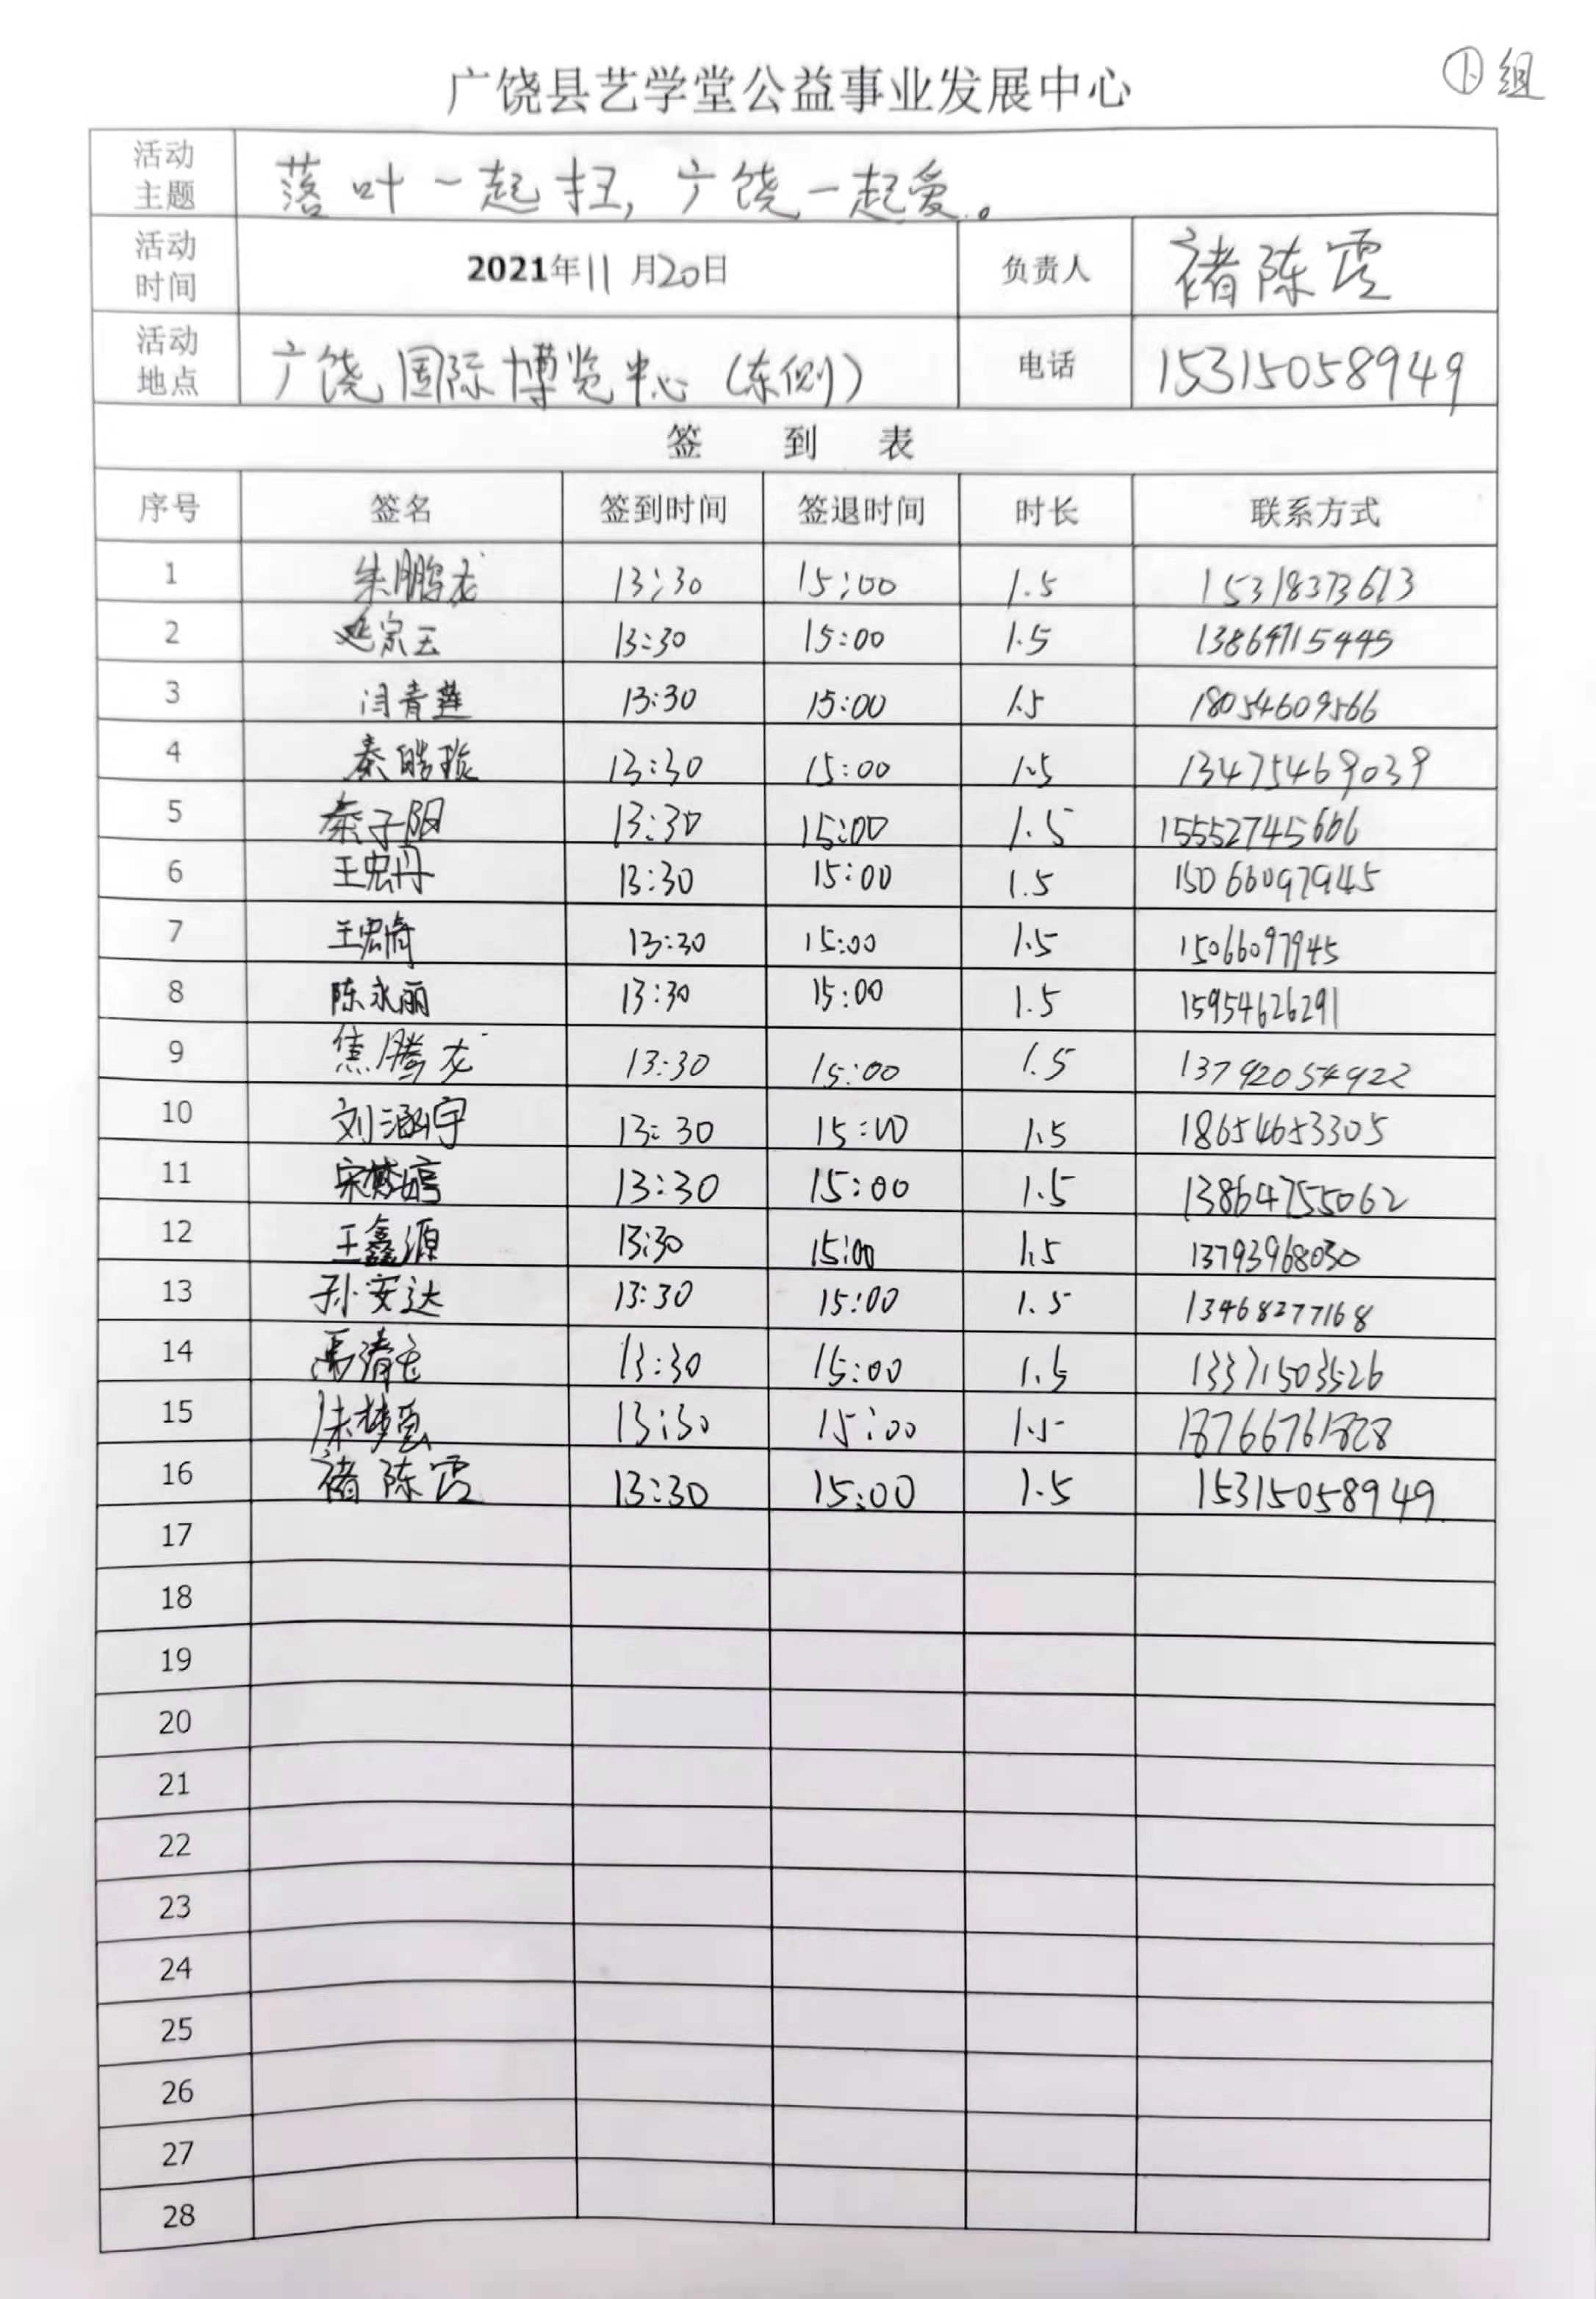 广饶县艺学堂公益事业发展中心
组
活动主题 落叶一起扫,广饶一起爱。
活动时间 2021年11月20日 负责人 褚陈霞
活动地点 广饶国际博览中心(东侧) 电话 15315058949
签 到 表
序号 签名 签到时间 签退时间 时长 联系方式
1 朱鹏龙 13:30 15:00 1.5 15318373613
2 延宗玉 13:30 15:00 1.5 13864715445
3 闫青莲 13:30 15:00 1.5 18054609566
4 秦 13:30 15:00 1.5 13475469039
5 秦子阳 13:30 15:00 1.5 15552745606
6 王宏丹 13:30 15:00 1.5 15066097945
7 王宏 13:30 15:00 1.5 15066097945
8 陈永丽 13:30 15:00 1.5 15954626291
9 焦腾龙 13:30 15:00 1.5 13792054922
10 刘涵宇 13:30 15:00 1.5 18654653305
11 宋梦婷 13:30 15:00 1.5 13864755062
12 王鑫源 13:30 15:00 1.5 13793968030
13 孙安达 13:30 15:00 1.5 13468277168
14 13:30 15:00 1.5 13371503526
15 13:30 15:00 1.5
16 褚陈霞 13:30 15:00 1.5 15315058949
17
18
19
20
21
22
23
24
25
26
27
28